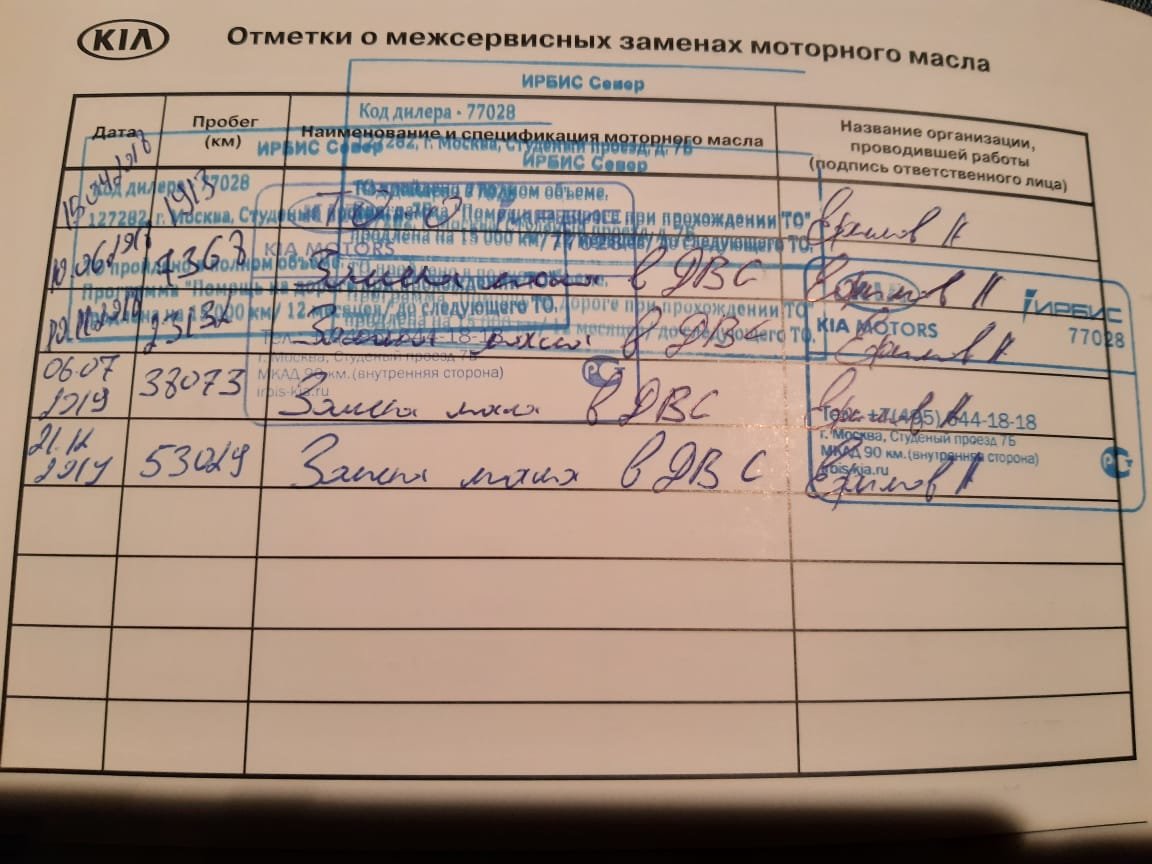 KIA
Отметки о межсервисных заменах моторного масла
ИРБИС Север
Код дилера - 77028
127282, г. Москва, Студеный проезд, д. 7Б
Дата
Пробег
(км)
Наименование и спецификация моторного масла
Название организации,
проводившей работы
(подпись ответственного лица)
ИРБИС Север
ИРБИС Север
Код дилера 77028
127282, г. Москва, Студеный
ТО пройдено в полном объеме.
Программа "Помощь на дороге при прохождении "ТО"
продлена на 15 000 км/ 12 месяцев/ до следующего ТО.
15.04.2018 1913 ТО-0 Ефимов А
KIA MOTORS
10.06.2018 7363 Замена масла в ДВС Ефимов А
ТО пройдено в полном объеме.
Программа "Помощь на дороге при прохождении ТО
продлена на 15 000 км/ 12 месяцев/ до следующего ТО.
ИРБИС
KIA MOTORS 77028
23132 Замена масла в ДВС Ефимов А
г. Москва, Студеный проезд 7Б
МКАД 90 км. (внутренняя сторона)
irbis-kia.ru
РСТ
06.07
2019 38073 Замена масла в ДВС Ефимов А
Тел.: +7(495) 644-18-18
г. Москва, Студеный проезд 7Б
МКАД 90 км. (внутренняя сторона)
irbis-kia.ru
РСТ
21.12
2019 53029 Замена масла в ДВС Ефимов А